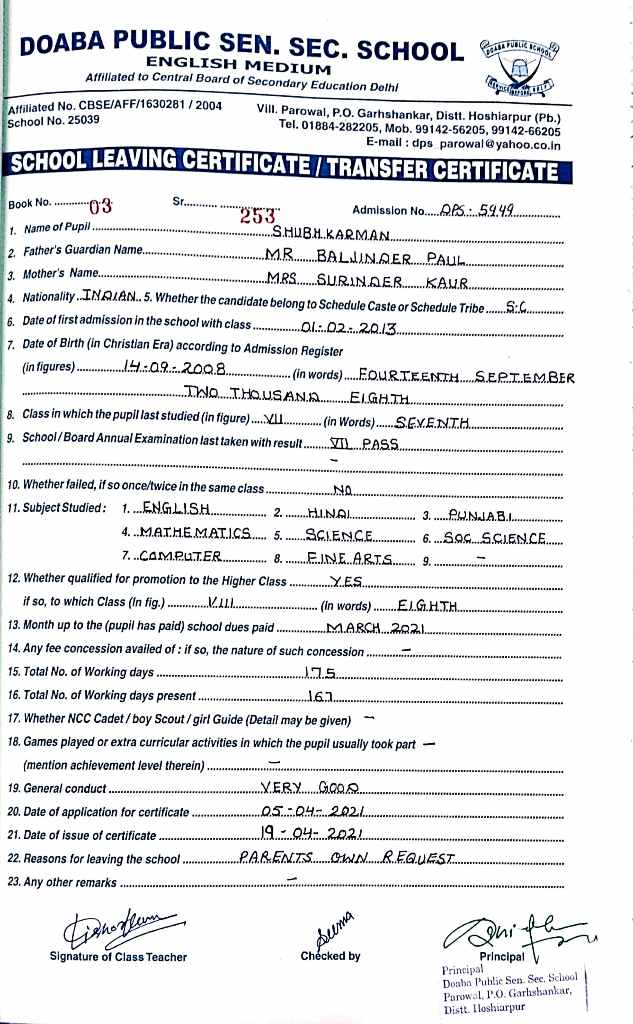 DOABA PUBLIC SEN. SEC. SCHOOL
ENGLISH MEDIUM
Affiliated to Central Board of Secondary Education Delhi
DOABA PUBLIC SCHOOL
Affiliated No. CBSE/AFF/1630281 / 2004
School No. 25039
Vill. Parowal, P.O. Garhshankar, Distt. Hoshiarpur (Pb.)
Tel. 01884-282205, Mob. 99142-56205, 99142-66205
E-mail : dps_parowal@yahoo.co.in
SCHOOL LEAVING CERTIFICATE / TRANSFER CERTIFICATE
Book No. 03 Sr. 253 Admission No. DPS-5949
1. Name of Pupil SHUBH KARMAN
2. Father's Guardian Name MR BALJINDER PAUL
3. Mother's Name MRS SURINDER KAUR
4. Nationality INDIAN 5. Whether the candidate belong to Schedule Caste or Schedule Tribe S.C
6. Date of first admission in the school with class 01-02-2013
7. Date of Birth (in Christian Era) according to Admission Register
(in figures) 14-09-2008 (in words) FOURTEENTH SEPTEMBER
TWO THOUSAND EIGHTH
8. Class in which the pupil last studied (in figure) VII (in Words) SEVENTH
9. School / Board Annual Examination last taken with result VII PASS
–
10. Whether failed, if so once/twice in the same class NO
11. Subject Studied : 1. ENGLISH 2. HINDI 3. PUNJABI
4. MATHEMATICS 5. SCIENCE 6. SOC SCIENCE
7. COMPUTER 8. FINE ARTS 9. –
12. Whether qualified for promotion to the Higher Class YES
if so, to which Class (In fig.) VIII (In words) EIGHTH
13. Month up to the (pupil has paid) school dues paid MARCH 2021
14. Any fee concession availed of : if so, the nature of such concession –
15. Total No. of Working days 175
16. Total No. of Working days present 167
17. Whether NCC Cadet / boy Scout / girl Guide (Detail may be given) –
18. Games played or extra curricular activities in which the pupil usually took part –
(mention achievement level therein) –
19. General conduct VERY GOOD
20. Date of application for certificate 05-04-2021
21. Date of issue of certificate 19-04-2021
22. Reasons for leaving the school PARENTS OWN REQUEST
23. Any other remarks –
Seema
Signature of Class Teacher Checked by Principal
Principal
Doaba Public Sen. Sec. School
Parowal, P.O. Garhshankar,
Distt. Hoshiarpur